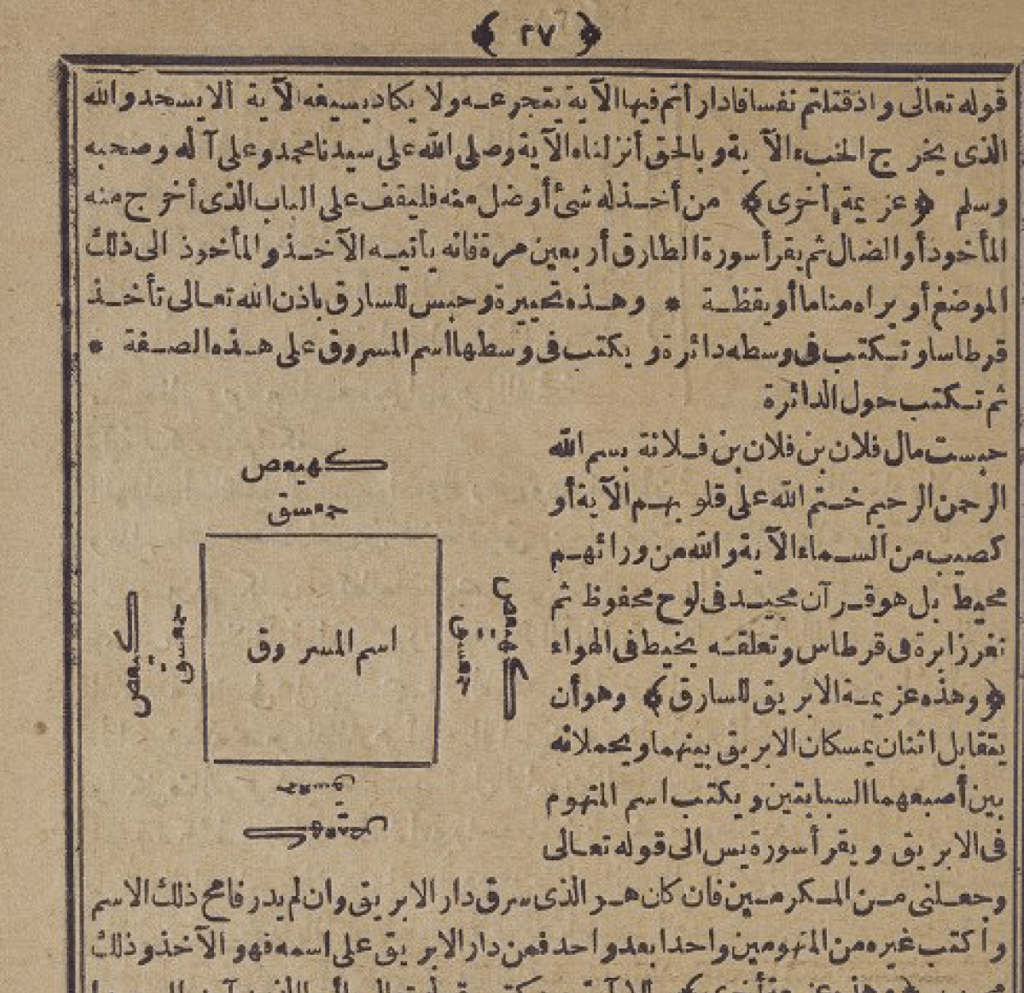 ﴿ ٢٧ ﴾
قوله تعالى واذ قتلتم نفسا فادارأتم فيها الآية يتجرعه ولا يكاد يسيغه الآية ألا يسجدوا لله
الذى يخرج الخبء الآية وبالحق أنزلناه الآية وصلى الله على سيدنا محمد وعلى آله وصحبه
وسلم ﴿عزيمة أخرى﴾ من أخذ له شئ أو ضل منه فليقف على الباب الذى أخرج منه
المأخوذ أو الضال ثم يقرأ سورة الطارق أربعين مرة فانه يأتيه الآخذ والمأخوذ الى ذلك
الموضع أو يراه مناما أو يقظة * وهذه تحييرة وحبس للسارق باذن الله تعالى تأخذ
قرطاسا وتكتب فى وسطه دائرة ويكتب فى وسطها اسم المسروق على هذه الصفة *
ثم تكتب حول الدائرة
حبست مال فلان بن فلان بن فلانة بسم الله
الرحمن الرحيم ختم الله على قلوبهم الآية أو
كصيب من السماء الآية والله من ورائهم
محيط بل هو قرآن مجيد فى لوح محفوظ ثم
تغرز ابرة فى قرطاس وتعلقه بخيط فى الهواء
﴿وهذه عزيمة الابريق للسارق﴾ وهو أن
يتقابل اثنان يمسكان الابريق بينهما ويحملانه
بين أصبعهما السبابتين ويكتب اسم المتهوم
فى الابريق ويقرأ سورة يس الى قوله تعالى
كهيعص
حمعسق
كهيعص
حمعسق
اسم المسروق
كهيعص
حمعسق
حمعسق
كهيعص
وجعلنى من المكرمين فان كان هو الذى سرق دار الابريق وان لم يدر فامح ذلك الاسم
واكتب غيره من المتهومين واحدا بعد واحد فمن دار الابريق على اسمه فهو الآخذ وذلك